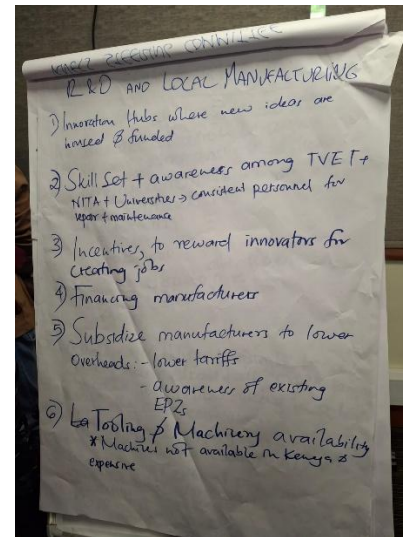 STEERING COMMITTEE
R&D AND LOCAL MANUFACTURING
1) Innovation Hubs where new ideas are
housed & funded
2) Skill Set + awareness among TVET +
NITA + Universities → consistent personnel for
repair + maintenance
3) Incentives, to reward innovators for
creating jobs
4) Financing manufacturers
5) Subsidize manufacturers to lower
Overheads: - lower tariffs
- awareness of existing
EPZs
6) Tooling & Machinery availability
* Machines not available in Kenya &
expensive